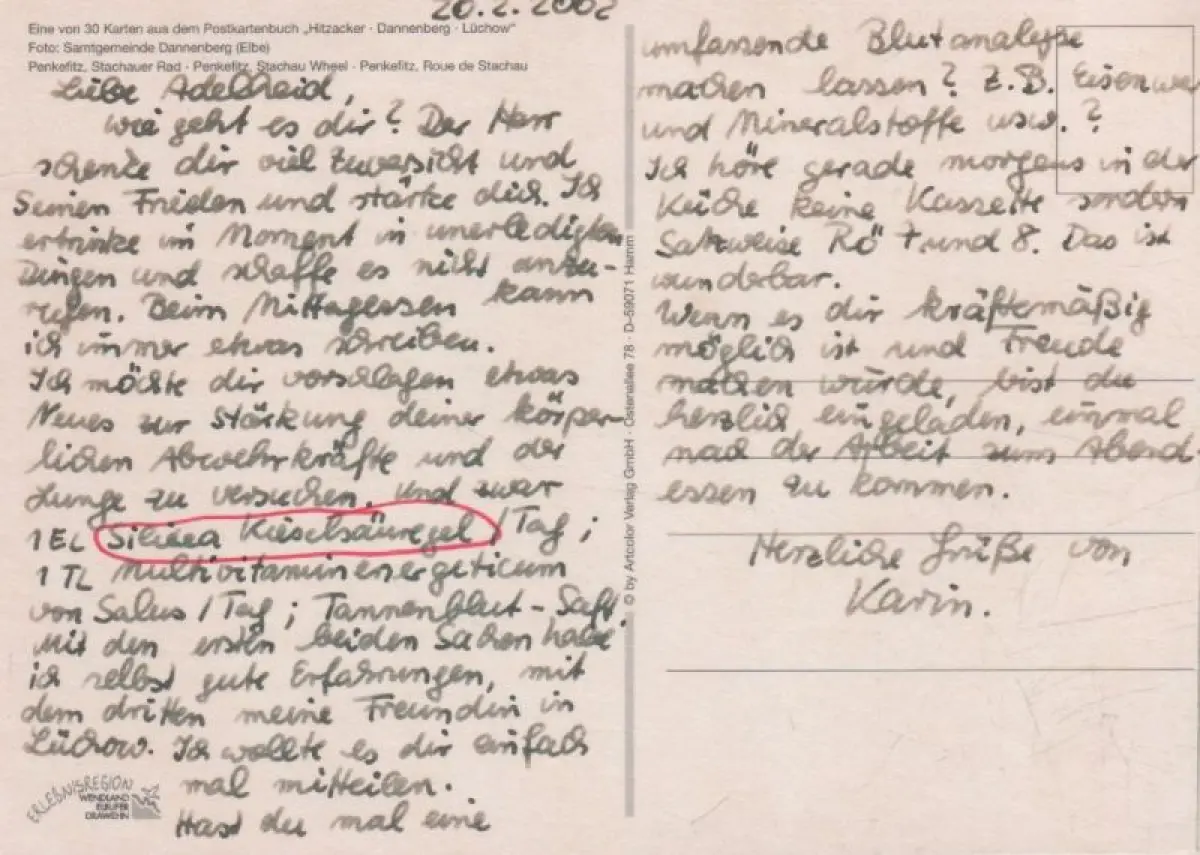 20.2.2002
Eine von 30 Karten aus dem Postkartenbuch „Hitzacker · Dannenberg · Lüchow"
Foto: Samtgemeinde Dannenberg (Elbe)
Penkefitz, Stachauer Rad · Penkefitz, Stachau Wheel · Penkefitz, Roue de Stachau
Liebe Adelheid,
wie geht es dir? Der Herr
schenke dir viel Zuversicht und
Seinen Frieden und stärke dich. Ich
ertrinke im Moment in unerledigten
Dingen und schaffe es nicht anzu-
rufen. Beim Mittagessen kann
ich immer etwas schreiben.
Ich möchte dir vorschlagen etwas
Neues zur Stärkung deiner körper-
lichen Abwehrkräfte und der
Lunge zu versuchen, und zwar
1 EL Silicea Kieselsäuregel / Tag ;
1 TL Multivitamin energeticum
von Salus / Tag ; Tannenblut-Saft.
Mit den ersten beiden Sachen habe
ich selbst gute Erfahrungen, mit
dem dritten meine Freundin in
Lüchow. Ich wollte es dir einfach
mal mitteilen.
Hast du mal eine
ERLEBNISREGION
WENDLAND
ELBUFER
DRAWEHN
© by Artcolor Verlag GmbH · Ostenallee 78 · D-59071 Hamm
umfassende Blutanalyse
machen lassen? Z.B. Eisenwer
und Mineralstoffe usw. ?
Ich höre gerade morgens in der
Küche keine Kassette sondern
Satzweise Rö 7 und 8. Das ist
wunderbar.
Wenn es dir kräftemäßig
möglich ist und Freude
machen würde, bist du
herzlich eingeladen, einmal
nach der Arbeit zum Abend-
essen zu kommen.
Herzliche Grüße von
Karin.